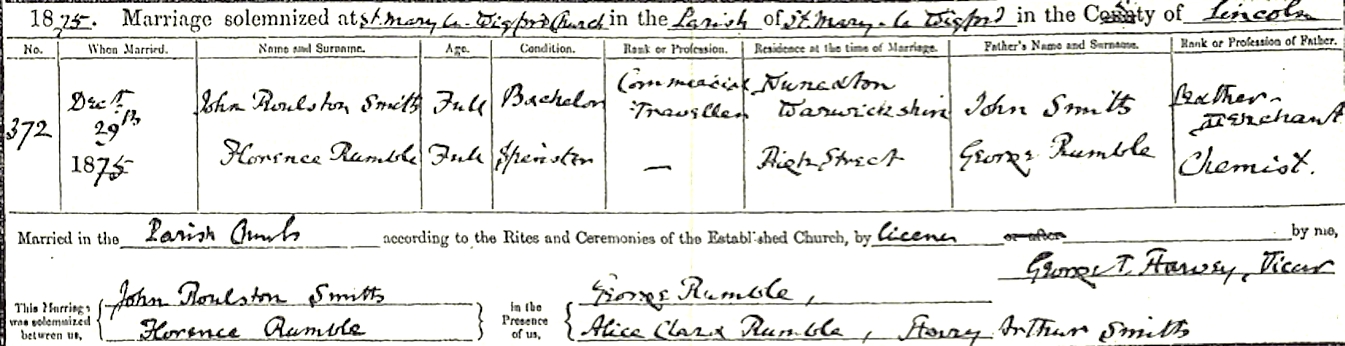 1875. Marriage solemnized at St. Mary le Wigford Church in the Parish of St. Mary-le Wigford in the County of Lincoln
No. When Married. Name and Surname. Age. Condition. Rank or Profession. Residence at the time of Marriage. Father's Name and Surname. Rank or Profession of Father.
372 Decr 29th 1875 John Roulston Smith Full Bachelor Commercial Traveller Nuneaton Warwickshire John Smith Leather-Merchant
Florence Rumble Full Spinster — High Street George Rumble Chemist.
Married in the Parish Church according to the Rites and Ceremonies of the Established Church, by licence or after by me,
George T. Harvey, Vicar
This Marriage was solemnized between us, John Roulston Smith In the Presence of us, George Rumble,
Florence Rumble Alice Clara Rumble, Harry Arthur Smith